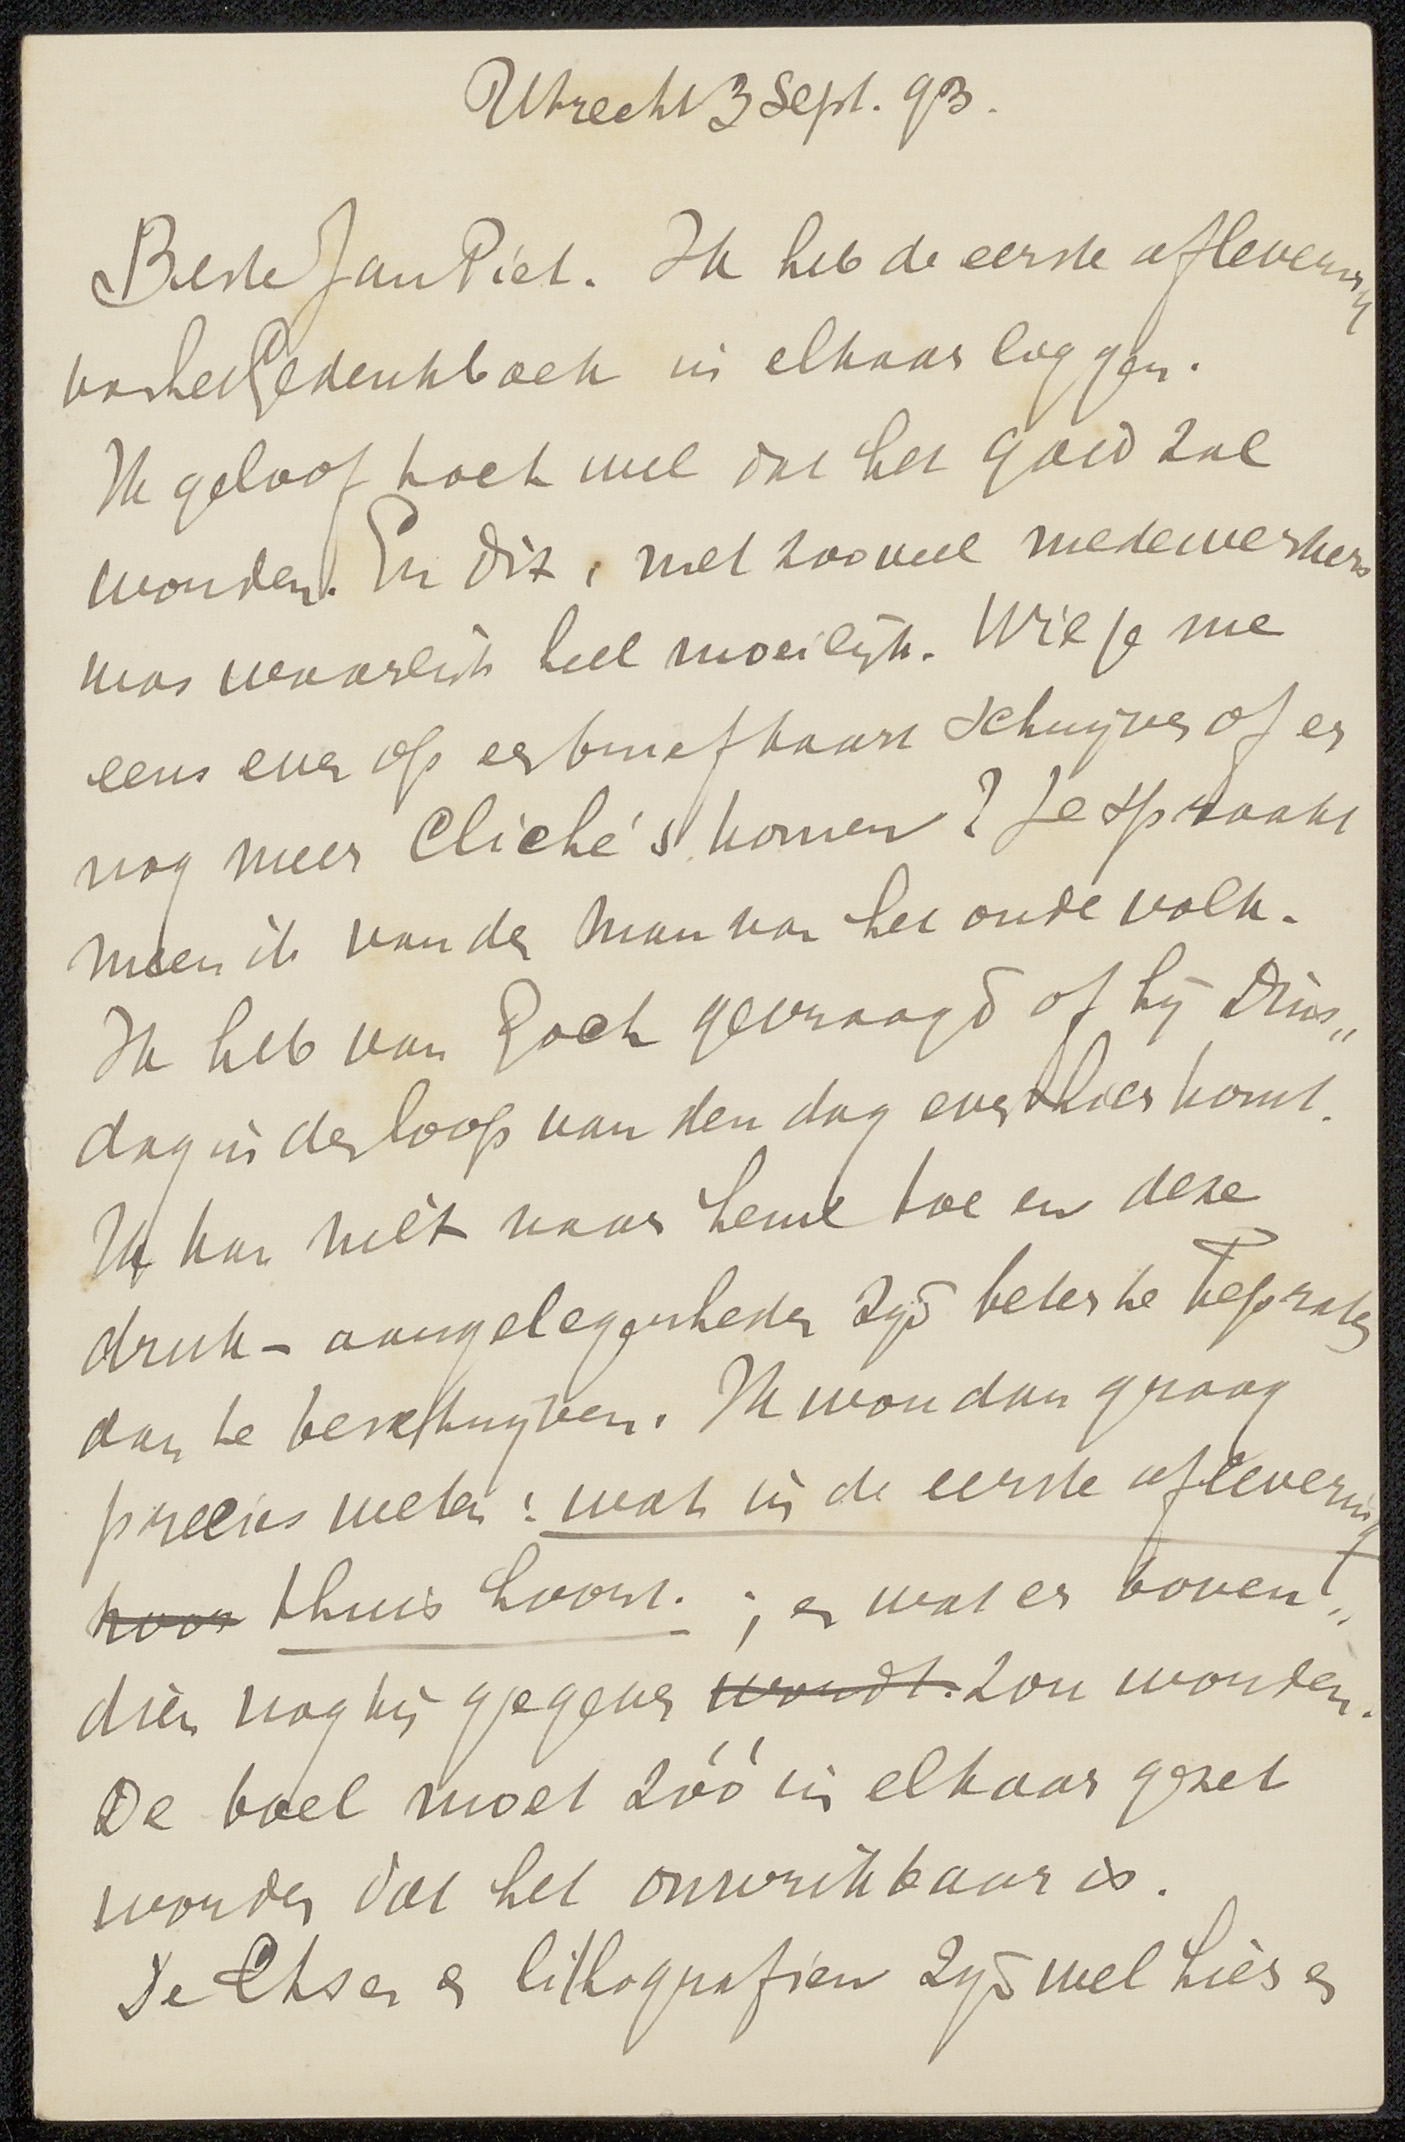 Utrecht 3 Sept. 93.
Beste Jan Piet. Ik heb de eerste aflevering
van het Gedenkboek in elkaar liggen.
Ik geloof toch wel dat het goed zal
worden. En dit, met zooveel medewerkers
was waarlijk heel moeilijk. Wil je me
eens even op een briefkaart schrijven of er
nog meer Cliché's komen? Je spraakt
meen ik van de Man van het oude volk.
Ik heb van Goch gevraagd of hij Dins„
dag in de loop van den dag even hier komt.
Ik kan niet naar hem toe en deze
druk-aangelegenheden zijn beter te bepraten
dan te beschrijven. Ik wou dan graag
precies weten: wat in de eerste aflevering
hoor thuis hoort. ; en wat er boven„
dien nog bij gegeven wordt. zou worden.
De boel moet zóó in elkaar gezet
worden dat het onwrikbaar is.
De Etsen en lithografien zijn wel hier en